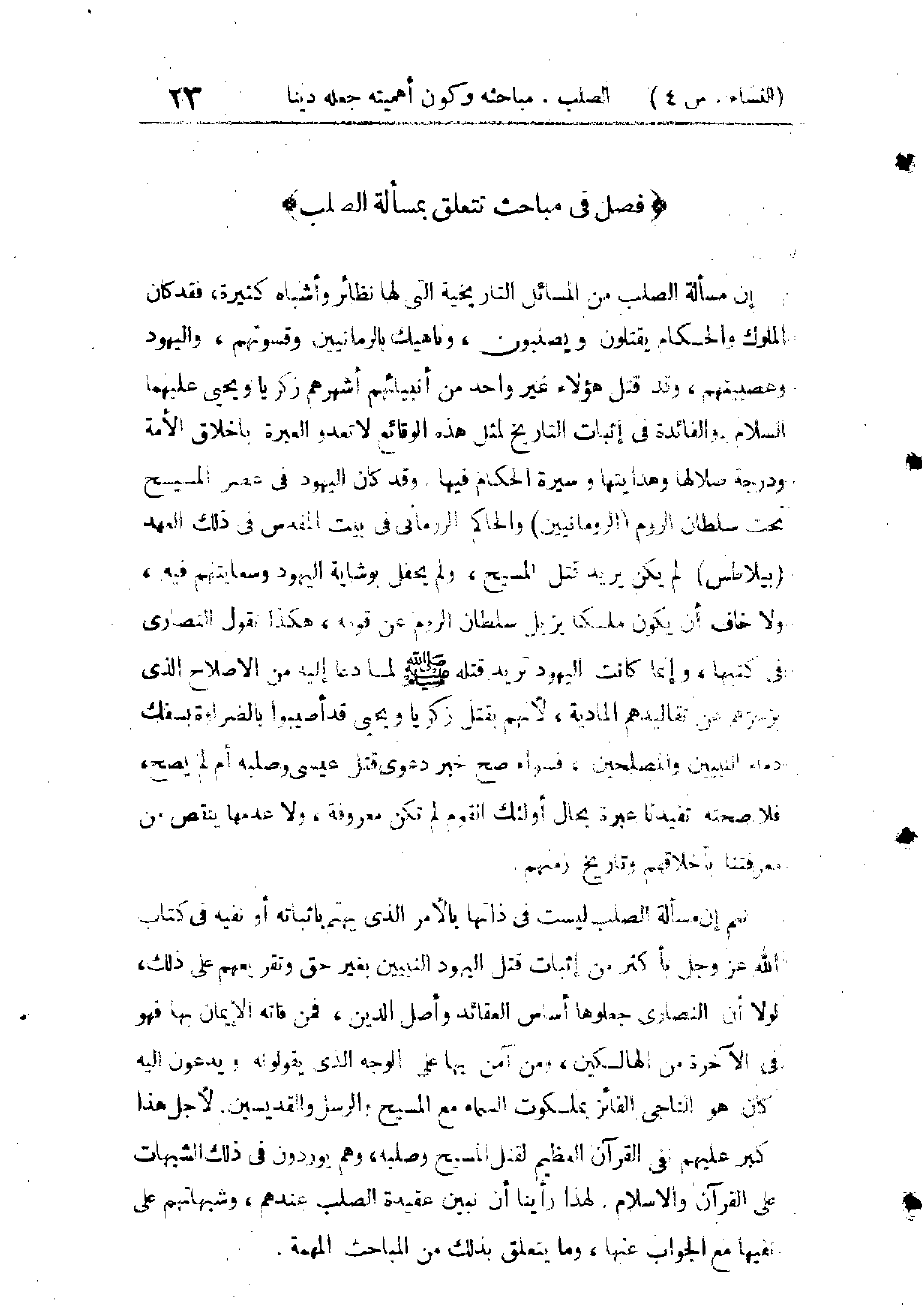 (النساء . س ٤) الصلب . مباحثه وكون أهميته جعله دينا ٢٣
﴿ فصل فى مباحث تتعلق بمسألة الصلب ﴾
إن مسألة الصلب من المسائل التاريخية التى لها نظائر وأشباه كثيرة، فقد كان
الملوك والحكام يقتلون ويصلبون ، وناهيك بالرمانيين وقسوتهم ، واليهود
وعصبيتهم ، وقد قتل هؤلاء غير واحد من أنبيائهم أشهرهم زكريا ويحيى عليهما
السلام . والفائدة فى إثبات التاريخ لمثل هذه الوقائع لا تعدو العبرة بأخلاق الأمة
ودرجة ضلالها وهدايتها وسيرة الحكام فيها . وقد كان اليهود فى عصر المسيح
تحت سلطان الروم (الرومانيين) والحاكم الرومانى فى بيت المقدس فى ذلك العهد
(بيلاطس) لم يكن يريد قتل المسيح ، ولم يحفل بوشاية اليهود وسعايتهم فيه ،
ولا خاف أن يكون ملكا يزيل سلطان الروم عن قومه ، هكذا تقول النصارى
فى كتبها ، وإنما كانت اليهود تريد قتله ﷺ لما دعا إليه من الاصلاح الذى
يزحزحهم عن تقاليدهم المادية ، لأنهم بقتل زكريا ويحيى قد أصيبوا بالضراوة بسفك
دماء النبيين والمصلحين ، فسواء صح خبر دعوى قتل عيسى وصلبه أم لم يصح،
فلا صحته تفيدنا عبرة بحال أولئك القوم لم تكن معروفة ، ولا عدمها ينقص من
معرفتنا بأخلاقهم وتاريخ زمنهم .
نعم إن مسألة الصلب ليست فى ذاتها بالأمر الذى يهتم باثباته أو نفيه فى كتاب
الله عز وجل بأكثر من إثبات قتل اليهود النبيين بغير حق وتقريعهم على ذلك،
لولا أن النصارى جعلوها أساس العقائد وأصل الدين ، فمن فاته الإيمان بها فهو
فى الآخرة من الهالكين ، ومن آمن بها على الوجه الذى يقولونه ويدعون اليه
كان هو الناجى الفائز بملكوت السماء مع المسيح والرسل والقديسين. لأجل هذا
كبر عليهم نفى القرآن العظيم لقتل المسيح وصلبه، وهم يوردون فى ذلك الشبهات
على القرآن والاسلام . لهذا رأينا أن نبين عقيدة الصلب عندهم ، وشبهاتهم على
نفيها مع الجواب عنها ، وما يتعلق بذلك من المباحث المهمة .